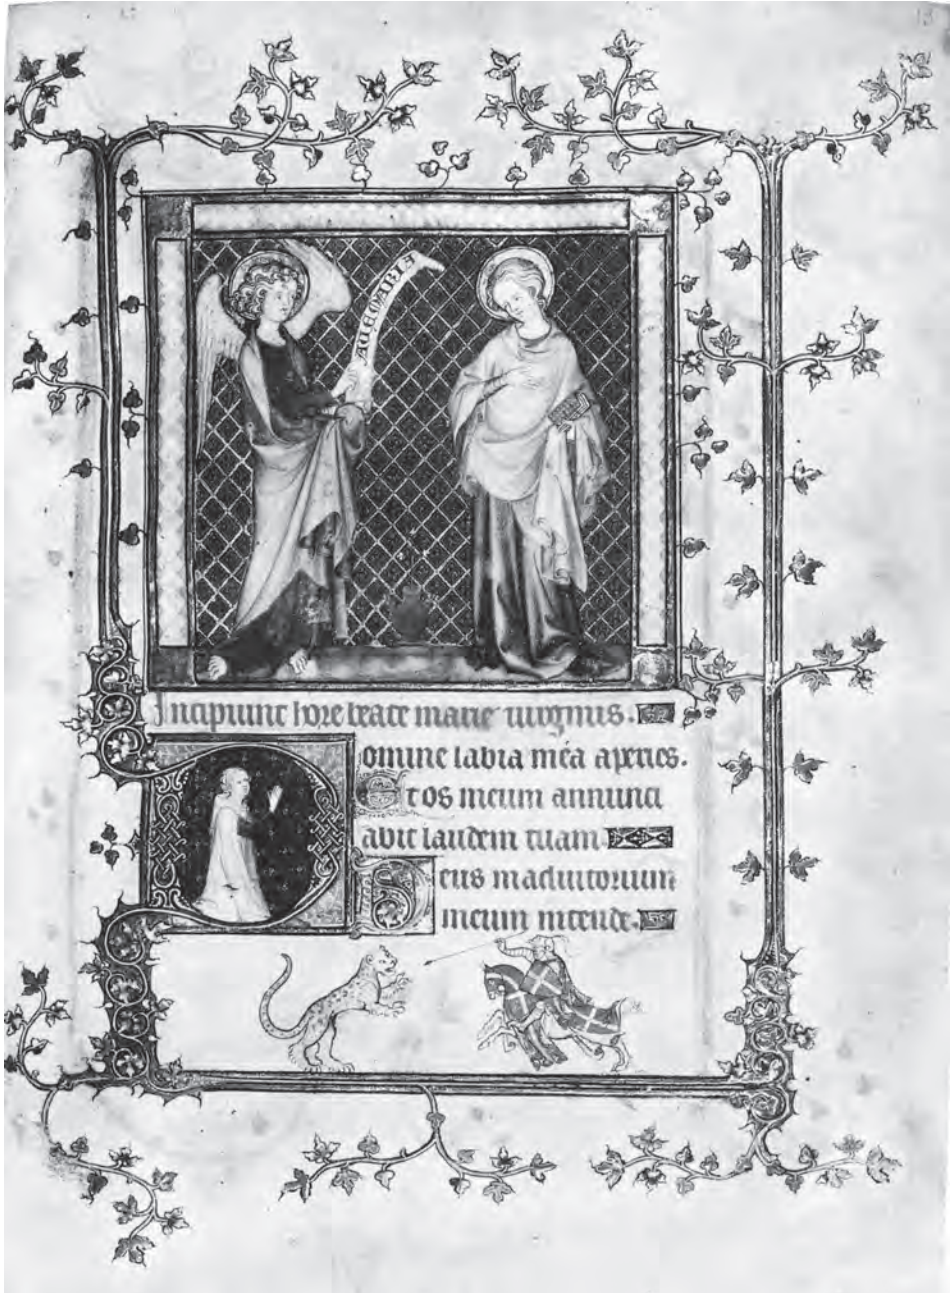 AUE MARIE
Incipiunt hore beate marie uirginis.
Domine labia mea aperies.
Et os meum annunci
abit laudem tuam
Deus in adiutorium
meum intende.